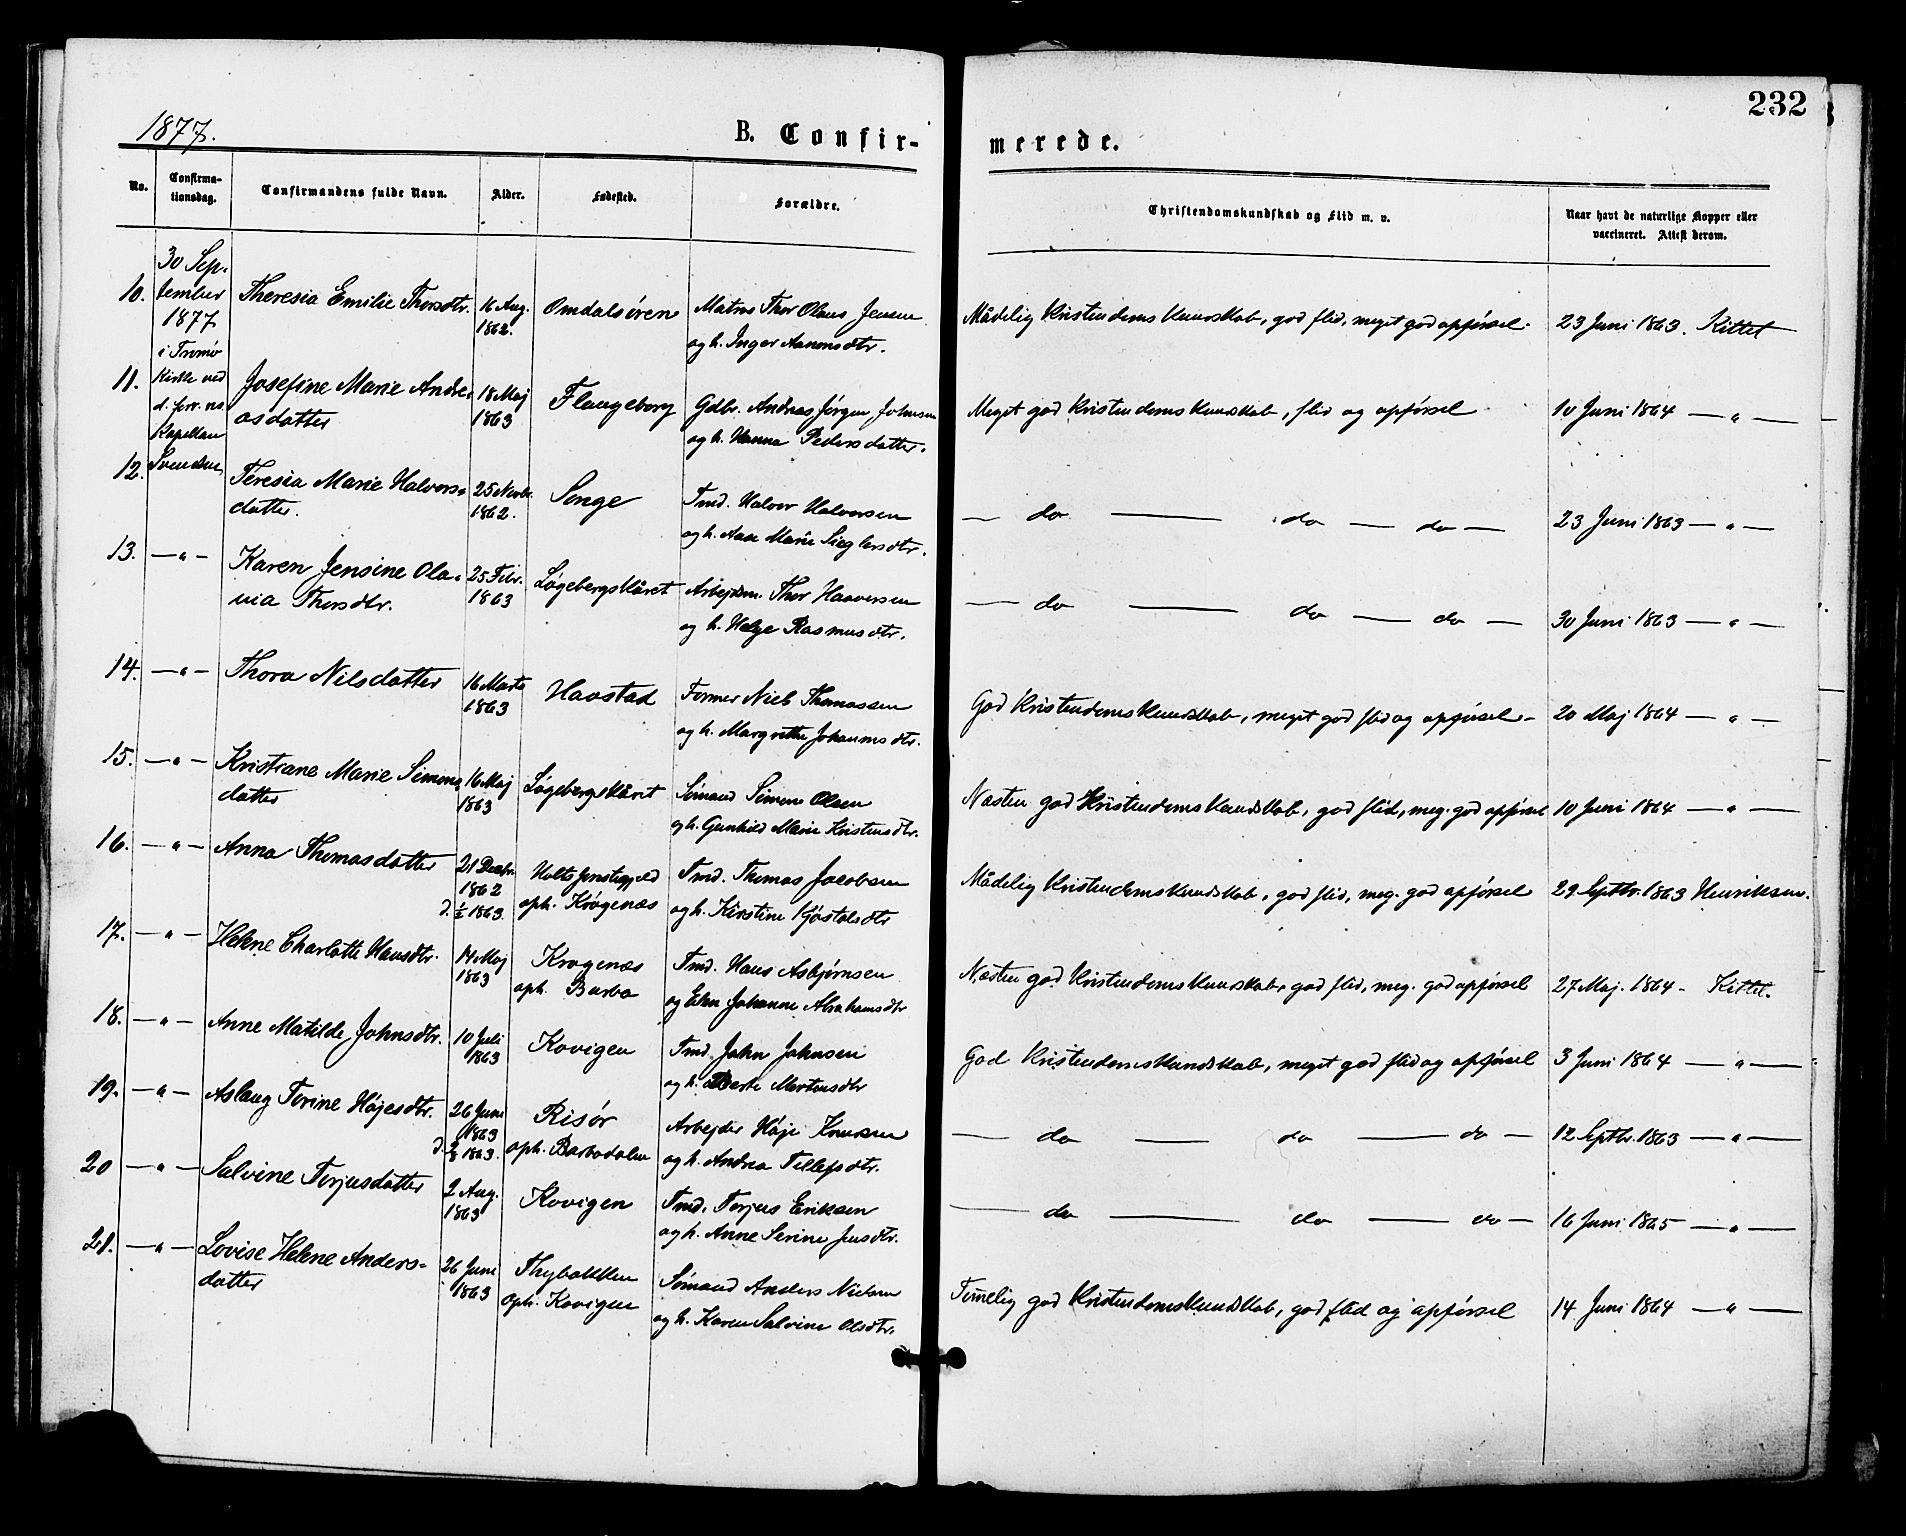 232
1877.
B. Confir-
merede.
No.
Confirma-
tionsdag.
Confirmandens fulde Navn.
Alder.
Fødested.
Forældre.
Christendomskundskab og Flid m. v.
Naar havt de naturlige Kopper eller
vaccineret. Attest derom.
30 Sep-
tember
1877
i Tromø
Kirke ved
d. forr. ns
Kapellan
Svendsen
10. Theresia Emilie Thorsdtr. 16 Aug. Omdalsøren Matros Thor Olaus Jensen Mådelig Kristendomskundskab, god flid, meget god opførsel. 23 Juni 1863. Kittel
1862. og h. Inger Aanonsdtr.
11. Josefine Marie Andre- 18 Maj Flangeborg Gdbr. Andreas Jørgen Johnsen Meget god Kristendomskundskab, flid og opførsel 10 Juni 1864 — " —
asdatter 1863 og h. Hanna Pedersdatter.
12. Teresia Marie Halvors- 25 Novbr. Songe Tmd. Halvor Halvorsen — do — do — do — 23 Juni 1863 — " —
datter. 1862. og h. Aase Marie
13. — " — Karen Jensine Ola- 25 Febr. Løgebergskåret Arbejdsm. Thor Haaversen — do — do — do — 30 Juni 1863 — " —
via Thorsdtr. 1863 og h. Helge Rasmusdtr.
14. — " — Thora Nilsdatter 16 Marts Havstad Former Niels Thomassen God Kristendomskundskab, meget god flid og opførsel - 20 Maj 1864 — " —
1863 og h. Margrethe Johannsdtr.
15. — " — Kristiane Marie Simons 16 Maj Løgebergskåret Sømand Simon Olsen Næsten god Kristendomskundskab, god flid, meg. god opførsel 10 Juni 1864 — " —
datter 1863 og h. Gunhild Marie Kristensdtr.
16. — " — Anna Thomasdatter 21 Decbr. Holts prestegjeld Tmd. Thomas Jacobsen Mådelig Kristendomskundskab, god flid, meg. god opførsel 29 Septbr. 1863 Henriksen.
1862 oph. Krøgenæs og h. Kirstine
d. 1/2 1863.
17. — " — Helene Charlotte Hansdtr. 14 Maj Krogenæs Tmd. Hans Asbjørnsen Næsten god Kristendomskundskab, god flid, meg. god opførsel 27 Maj. 1864 - Kittel.
1863 oph. Barbo og Elen Johanne Abrahamsdtr
18. — " — Anne Matilde Johnsdtr. 10 Juli Kovigen Tmd. John Johnsen God Kristendomskundskab, meget god flid og opførsel 3 Juni 1864 — " —
1863 og h. Berte Mortensdtr
19. — " — Aslaug Torine Højesdtr. 26 Juni Risør Arbejder Høje Knudsen — do — do — do — 12 Septbr. 1863 — " —
1863 oph. Barbodalen og h. Andrea Tellefsdtr.
1863.
20 — " — Salvine Terjusdatter 2 Aug. Kovigen Tmd. Terjus Eriksen — do — do — do — 16 Juni 1865 — " —
1863 og h. Anne Serine Jensdtr.
21. — " — Lovise Helene Anders- 26 Juni Thybakken Sømand Anders Nielsen Temmelig god Kristendomskundskab, god flid og opførsel 14 Juni 1864 — " —
datter 1863 oph. Kovigen og h. Karen Salvine Olsdtr.